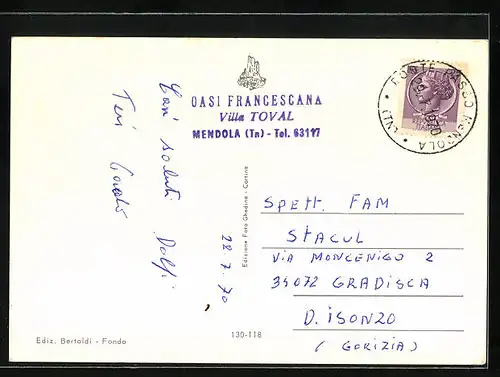 OASI FRANCESCANA
Villa TOVAL
MENDOLA (Tn) - Tel. 63117
FONTE PASSO MENDOLA (TN)
Cari saluti Dolfi
22.7.70
Edizione Foto Ghedina - Cortina
Spett. FAM
STACUL
VIA MONCENIGO 2
34072 GRADISCA
D. ISONZO
(GORIZIA)
130-118
Ediz. Bertoldi - Fondo